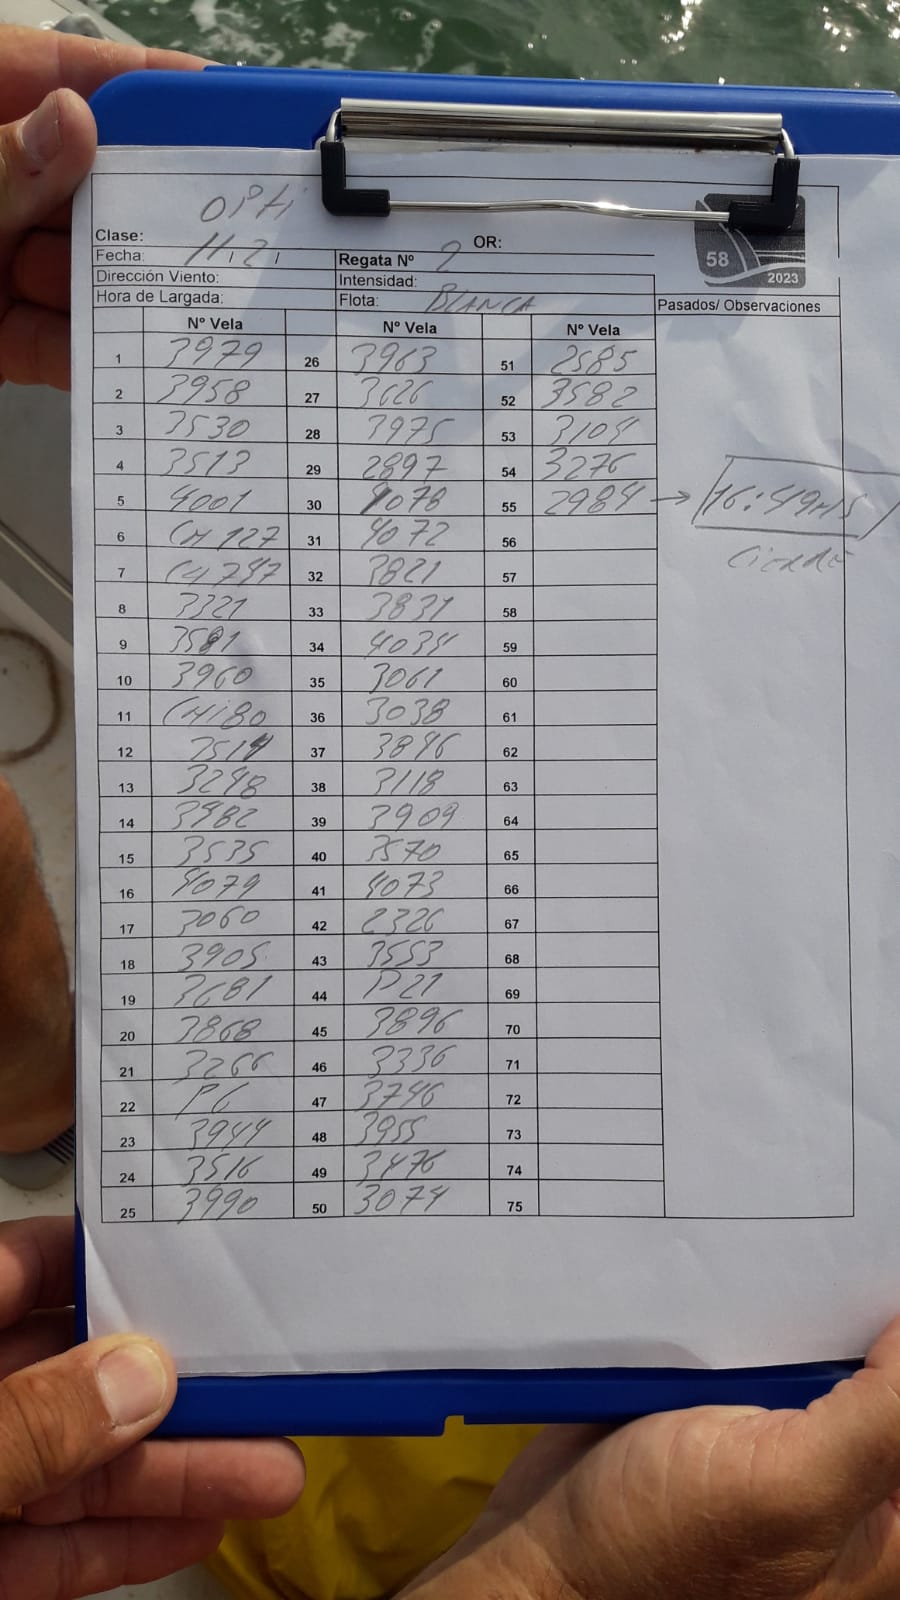 OPti
Clase: OR:
Fecha: 11.2. Regata Nº 2
Dirección Viento: Intensidad:
Hora de Largada: Flota: BLANCA Pasados/ Observaciones
58
2023
Nº Vela Nº Vela Nº Vela
1 3979 26 3963 51 2585
2 3958 27 3626 52 3582
3 3530 28 3975 53 3104
4 3513 29 2897 54 3276
5 4001 30 4078 55 2984 → 16:49HS
6 CH 127 31 4072 56 cierre
7 32 3821 57
8 3321 33 3831 58
9 3581 34 4034 59
10 3960 35 3061 60
11 CHI80 36 3038 61
12 3514 37 3846 62
13 3248 38 3118 63
14 3982 39 3909 64
15 3535 40 3570 65
16 4079 41 4073 66
17 3060 42 2326 67
18 3905 43 3553 68
19 3681 44 P21 69
20 3868 45 3896 70
21 3266 46 3336 71
22 P6 47 3746 72
23 3944 48 3955 73
24 3516 49 3476 74
25 3990 50 3074 75